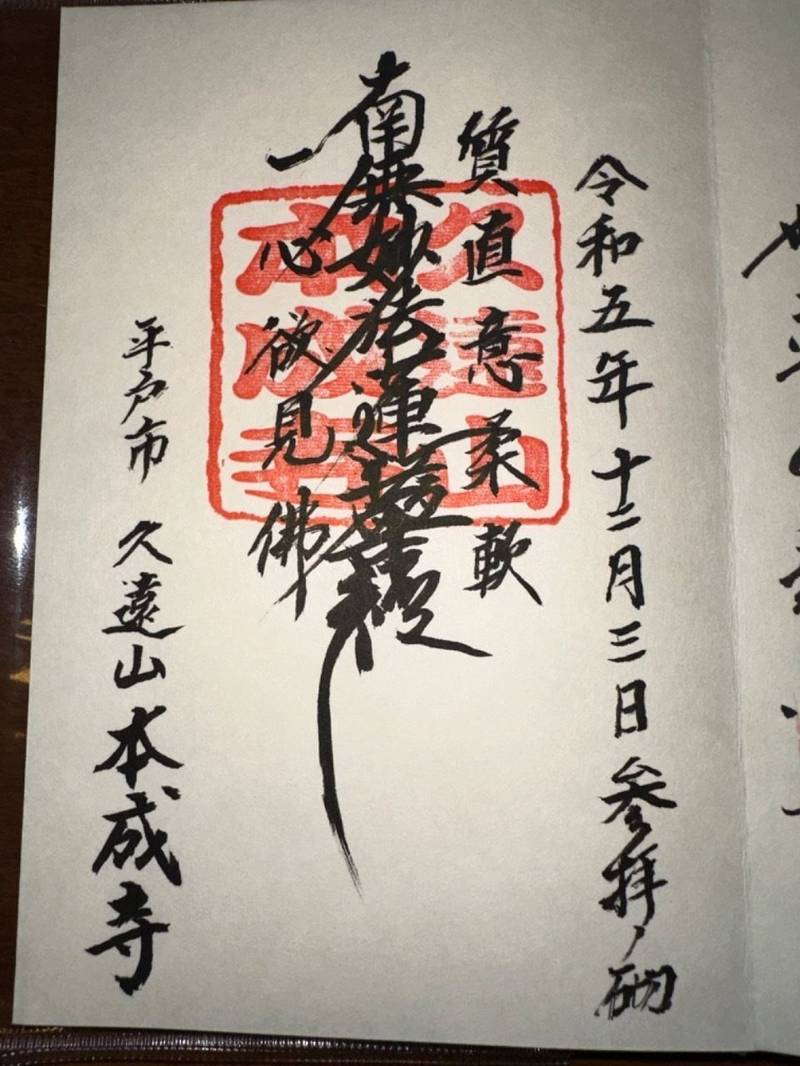 令和五年十二月三日参拝ノ砌
質直意柔軟
南無妙法蓮華経
一心欲見佛
久遠山
本成寺
平戸市 久遠山 本成寺